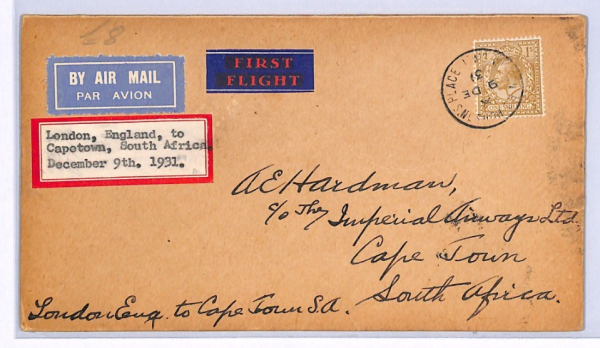 BY AIR MAIL
PAR AVION
FIRST
FLIGHT
London, England, to
Capetown, South Africa.
December 9th. 1931.
PLACE
9 DE
31
A E Hardman,
c/o The Imperial Airways Ltd,
Cape Town
South Africa.
London Eng. to Cape Town S.A.